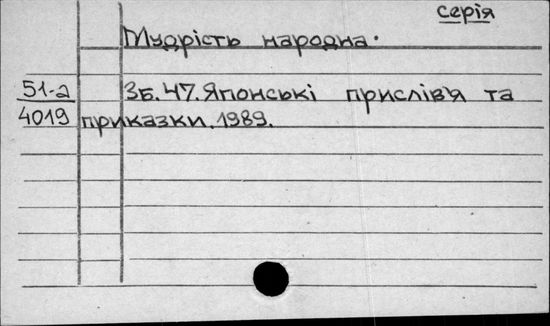 серія
Мудрість народна.
51-а Зб. 47. Японські прислів'я та
4019 приказки. 1989.